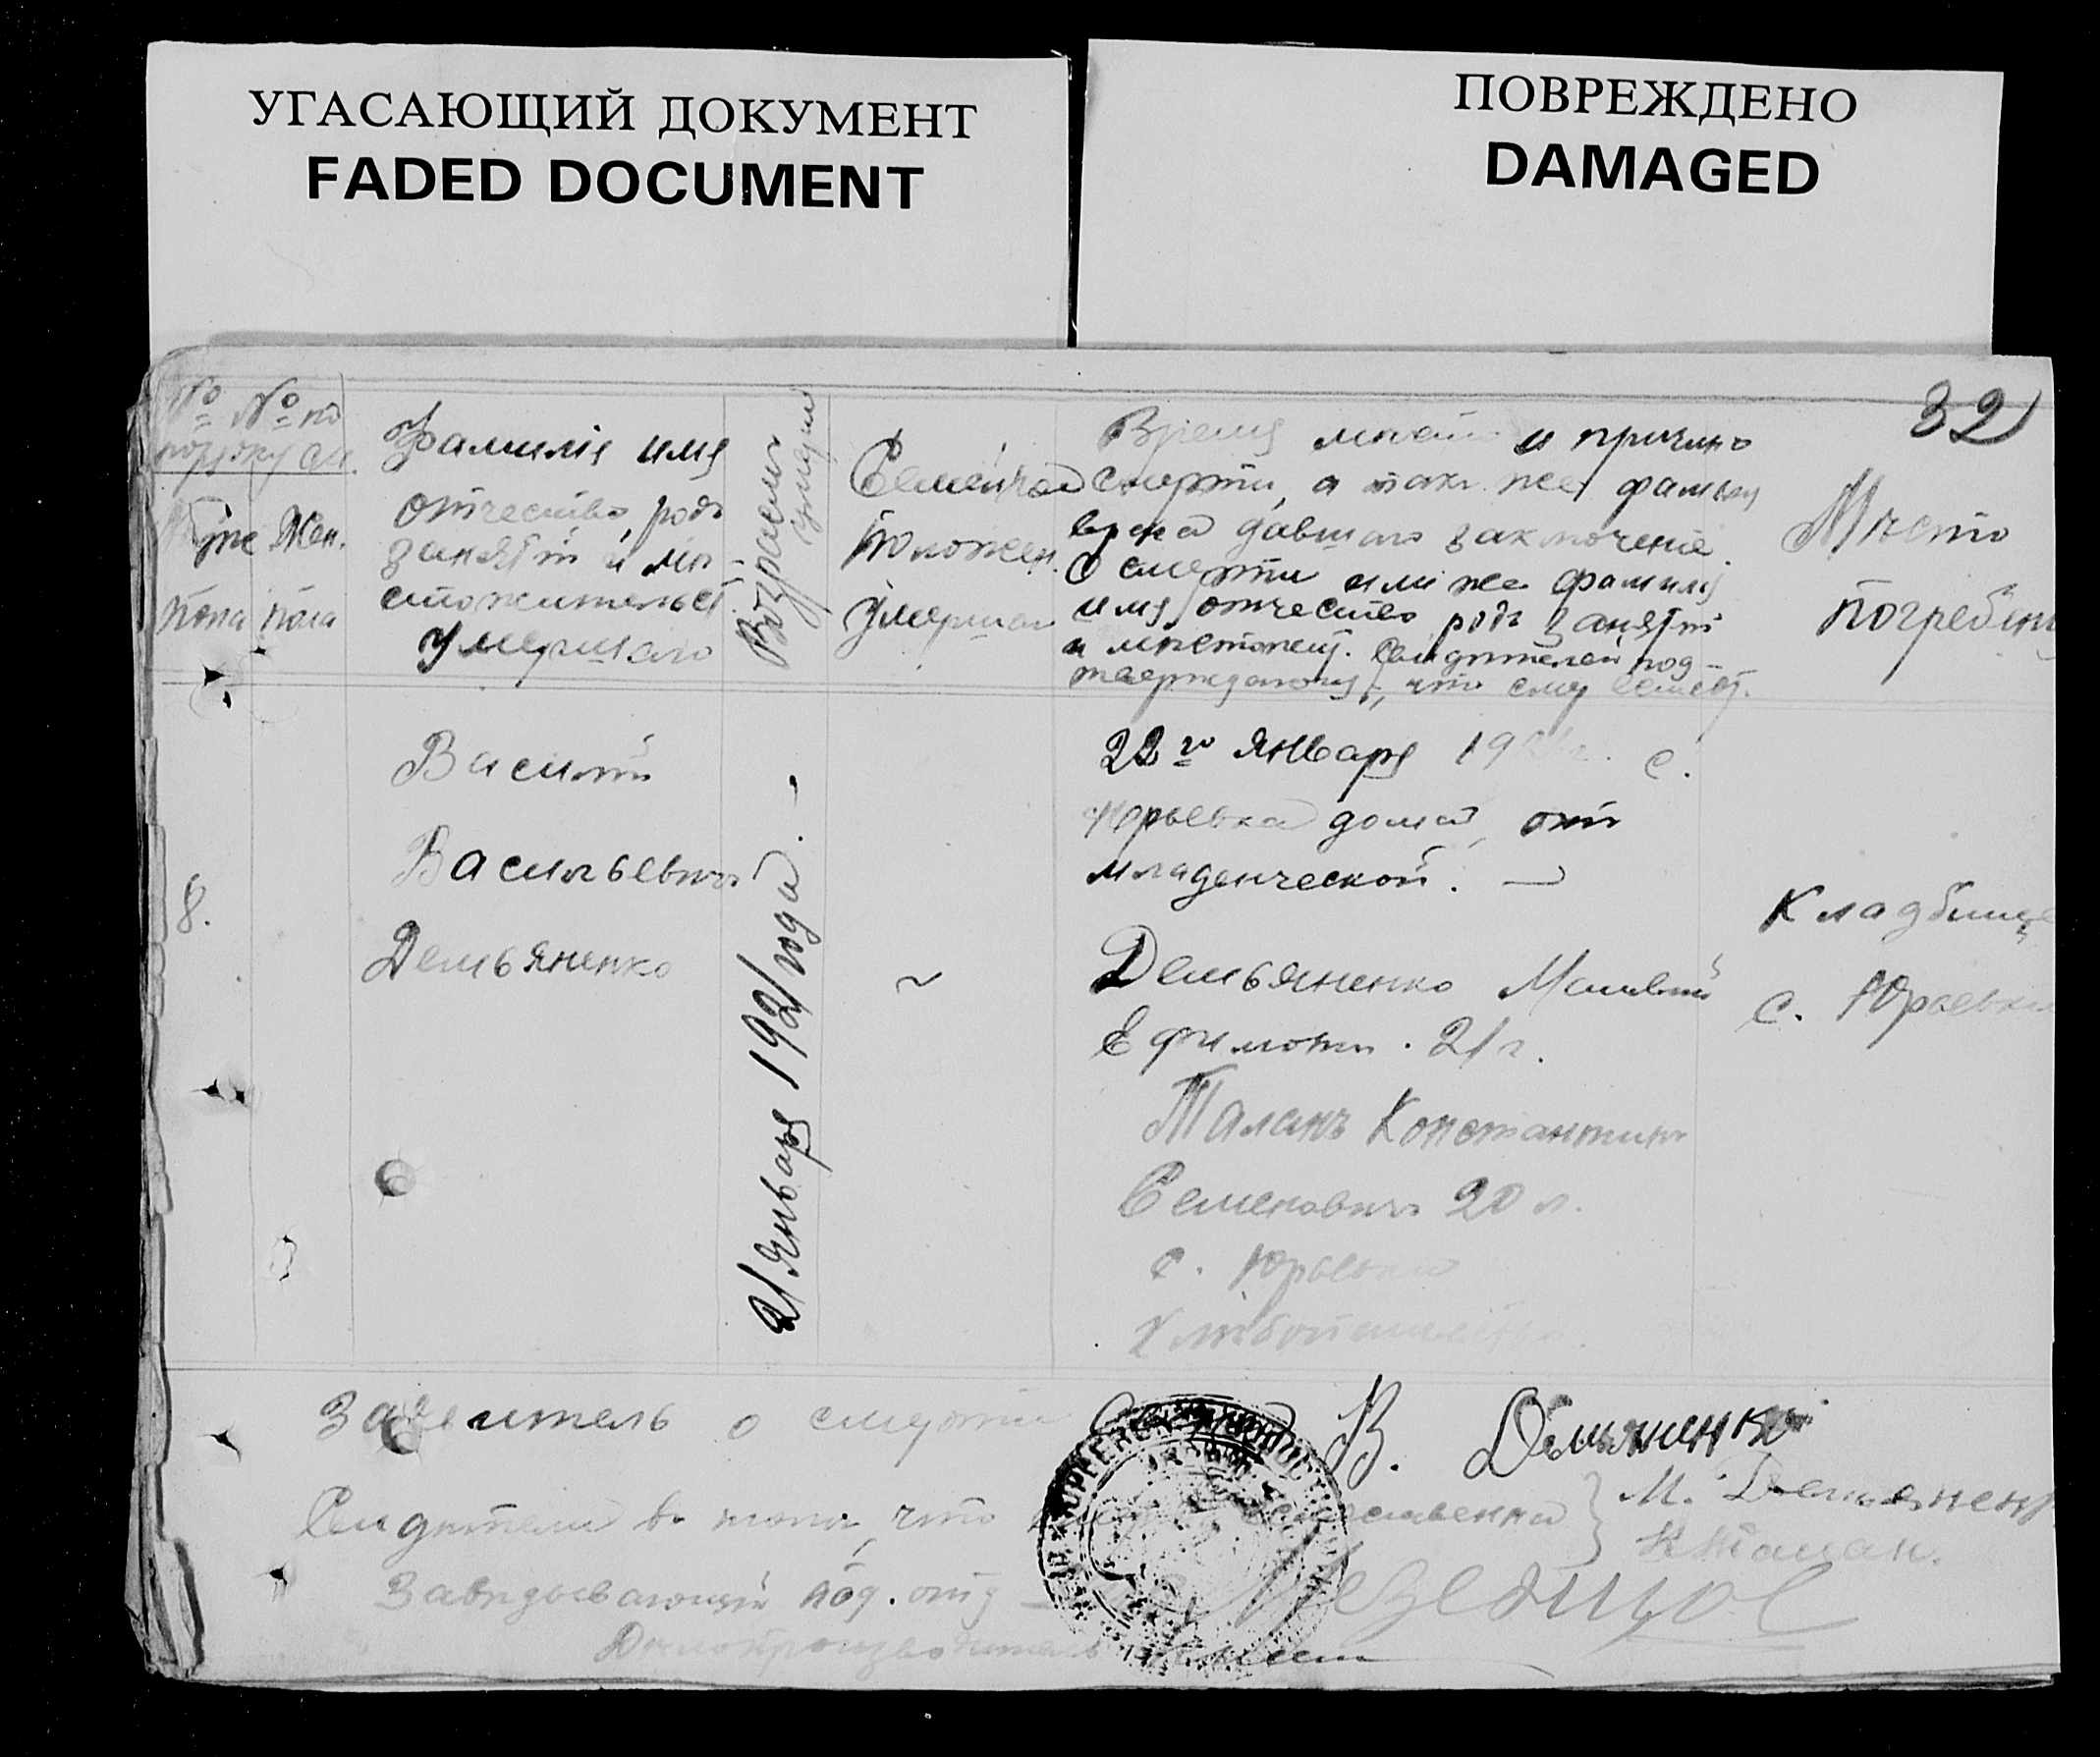 УГАСАЮЩИЙ ДОКУМЕНТ
FADED DOCUMENT
ПОВРЕЖДЕНО
DAMAGED
32
№ № по
Жен.
пола пола
Фамилія имя
отчество, родъ
занятій и мѣ-
стожительст.
умершаго
Возрастъ
умерш
Семейное
положен.
умершаго
Время мѣсто и причина
смерти, а также фамил
врача давшаго заключеніе
о смерти или же фамилія
имя отчество родъ занятій
и мѣстожит. свидѣтелей под-
тверждающ, что смер
Мѣсто
погребені
8.
Василій
Васильевичъ
Демьяненко
21 Января 1921 года. —
~
22го Января 192 г. с.
Юрьевка дома, отъ
младенческой. —
Демьяненко Матвѣй
Ефимовичъ. 21 г.
Таланъ Константинъ
Семеновичъ 20 л.
с. Юрьевка
Хлѣбопашество
Кладбище
с. Юрьевка
Заявитель о смерти
В. Демьяненко
Свидѣтели въ томъ, что
М. Демьяненк
К Талан.
Завѣдывающій под. отд
Дѣлопроизводитель